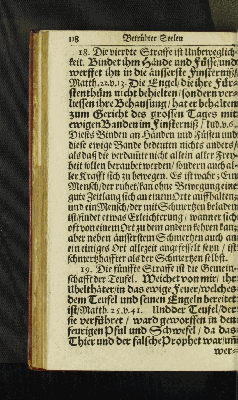 118 Betrübter Seelen
18. Die vierdte Straffe ist Unbeweglich-
keit. Bindet ihm Hände und Füsse/und
werffet ihn in die äusserste Finsterniß/
Matth. 22. v. 13. Die Engel/die ihre Für-
stenthüm nicht behielten/sondern ver-
liessen ihre Behausung/hat er behalten
zum Gericht des grossen Tages mit
ewigen Banden im Finsterniß/ Jud. v. 6.
Dieses Binden an Händen und Füssen und
diese ewige Bande bedeuten nichts anders/
als daß die verdammte nicht allein aller Frey-
heit sollen beraubet werden/ sondern auch al-
ler Krafft sich zu bewegen. Es ist wahr/ ein
Mensch/der ruhet/kan ohne Bewegung eine
gute Zeitlang sich an einem Orte aufhalten/
und ein Mensch/der mit Schmertzen beladen
ist/findet etwas Erleichterung/ wann er sich
oft von einem Ort zu dem andern kehren kan;
aber neben äussersten Schmertzen auch an
ein einiges Ort allezeit angefesselt seyn / ist
schmertzhaffter als der Schmertzen selbst.
19. Die fünffte Straffe ist die Gemein-
schafft der Teufel. Weichet von mir/ ihr
Ubelthäter/in das ewige Feuer/welches
dem Teufel und seinen Engeln bereitet
ist/Matth. 25. v. 41. Und der Teufel/der
sie verführet / ward geworffen in den
feurigen Pful und Schwefel / da das
Thier und der falsche Prophet war/und
wer-